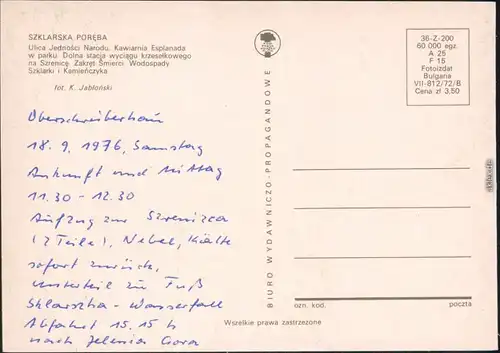 SZKLARSKA PORĘBA
Ulica Jedności Narodu. Kawiarnia Esplanada
w parku. Dolna stacja wyciągu krzesełkowego
na Szrenicę. Zakręt Śmierci. Wodospady
Szklarki i Kamieńczyka
fot. K. Jabłoński
Oberschreiberhau
18.9.1976, Samstag
Ankunft und Mittag
11.30 - 12.30
Aufzug zur Szrenizca
(2 Teile), Nebel, Kälte
sofort zurück,
unterteil zu Fuß
Sklarszka - Wasserfall
Abfahrt 15.15 h
nach Jelenia Gora
BIURO WYDAWNICZO-PROPAGANDOWE
36-Z-200
60 000 egz.
A 25
F 15
Fotoizdat
Bulgaria
VII-812/72/B
Cena zł 3,50
ozn. kod. poczta
Wszelkie prawa zastrzeżone